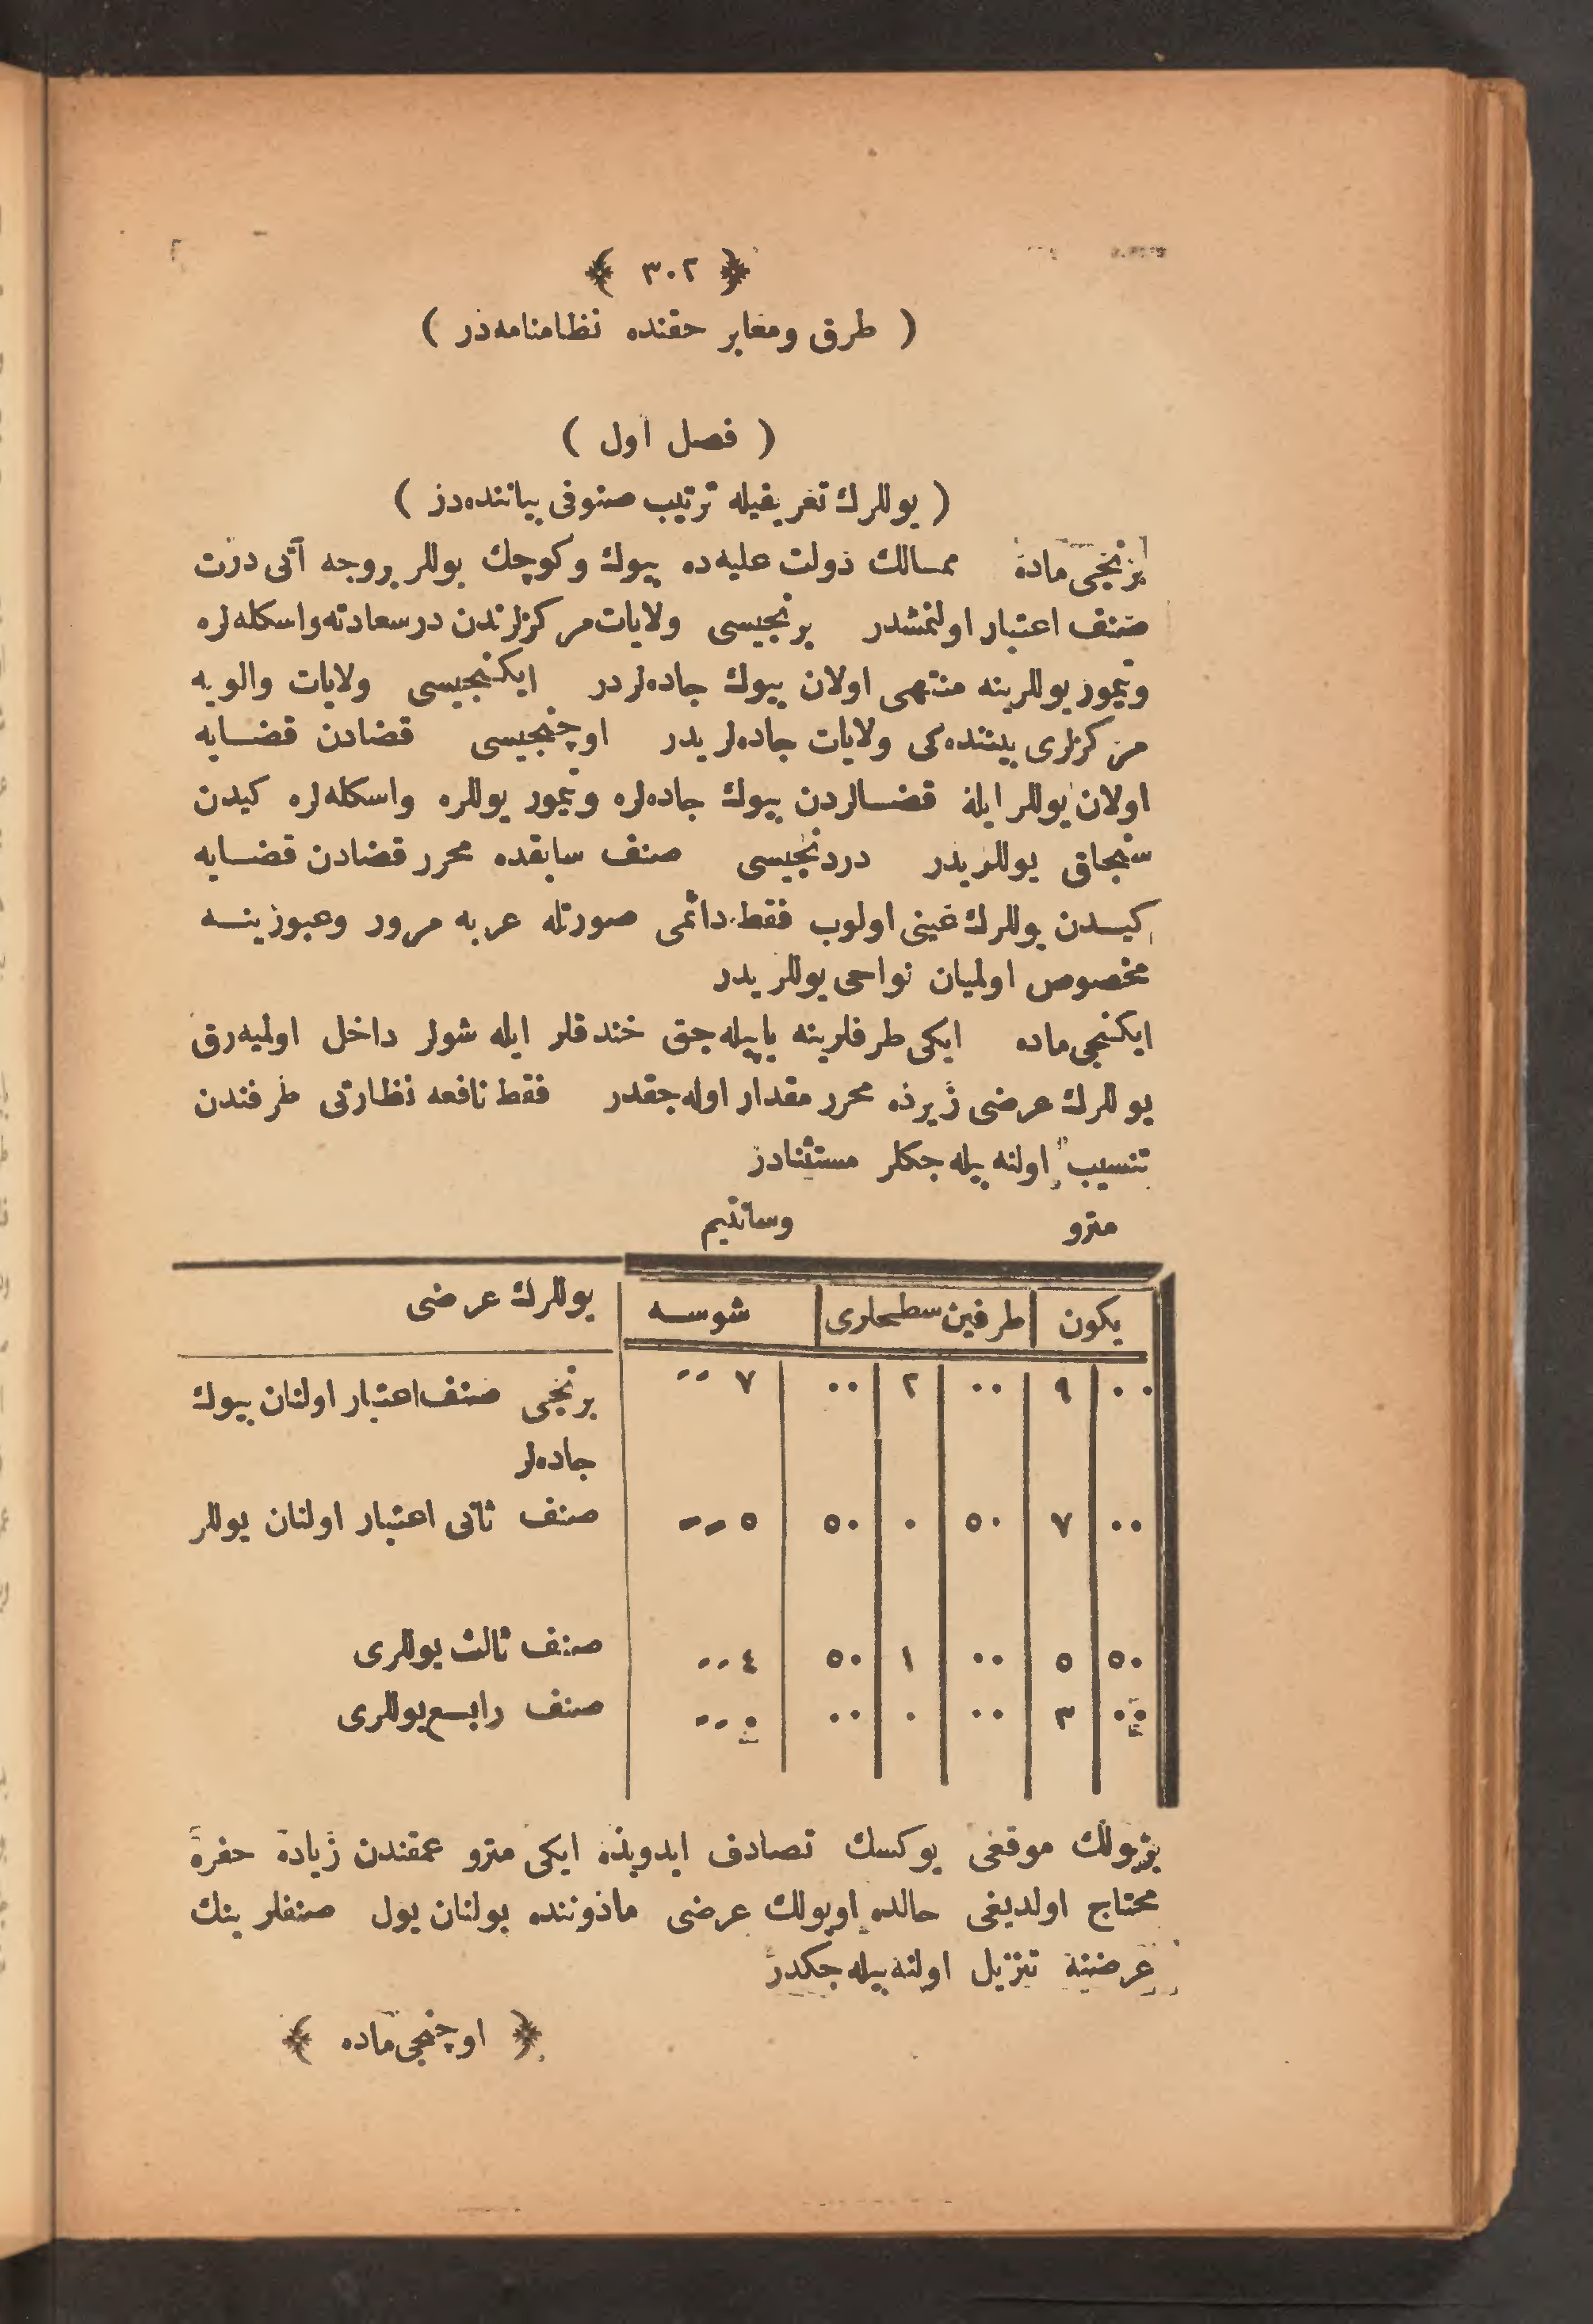 ﴿ ٣٠٢ ﴾
( طرق ومعابر حقنده نظامنامه‌در )
( فصل اول )
( يوللرك تعريفيله ترتيب صنوفى بياننده‌در )
برنجى ماده ممالك دولت عليه‌ده بيوك وكوچك يوللر بروجه آتى درت
صنف اعتبار اولنمشدر برنجيسى ولايات مركزلرندن درسعادته واسكله‌لره
وتيمور يوللرينه منتهى اولان بيوك جاده‌لردر ايكنجيسى ولايات والويه
مركزلرى بيننده‌كى ولايات جاده‌لريدر اوچنجيسى قضادن قضايه
اولان يوللر ايله قضالردن بيوك جاده‌لره وتيمور يوللره واسكله‌لره كيدن
سنجاق يوللريدر دردنجيسى صنف سابقده محرر قضادن قضايه
كيدن يوللرك عينى اولوب فقط دائمى صورتله عربه مرور وعبورينه
مخصوص اولميان نواحى يوللريدر
ايكنجى ماده ايكى طرفلرينه ياپيله‌جق خندقلر ايله شولر داخل اوليه‌رق
يوللرك عرضى زيرده محرر مقدار اوله‌جقدر فقط نافعه نظارتى طرفندن
تنسيب اولنه بيله‌جكلر مستثنادر
مترو وسانتيم
يكون طرفين سطحلرى شوسه يوللرك عرضى
٠٠ ٩ ٠٠ ٢ ٠٠ ٧ ٠٠ برنجى صنف اعتبار اولنان بيوك
جاده‌لر
٠٠ ٧ ٥٠ ٠ ٥٠ ٥ ٠٠ صنف ثانى اعتبار اولنان يوللر
٥٠ ٥ ٠٠ ١ ٥٠ ٤ ٠٠ صنف ثالث يوللرى
٠٠ ٣ ٠٠ ٠ ٠٠ ٠ ٠٠ صنف رابع يوللرى
بريولك موقعى يوكسك تصادف ايدوبده ايكى مترو عمقندن زياده حفره
محتاج اولديغى حالده اويولك عرضى مادوننده بولنان يول صنفلرينك
عرضنه تنزيل اولنه بيله‌جكدر
﴿ اوچنجى ماده ﴾